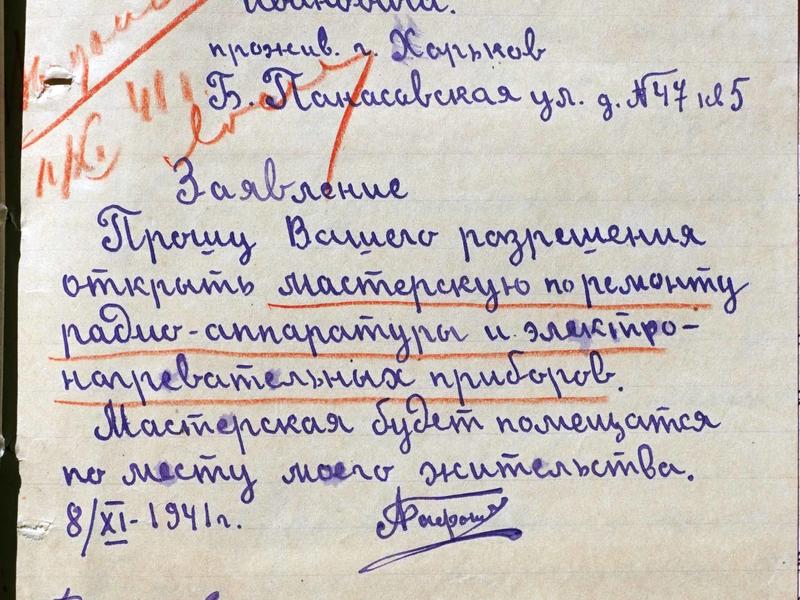 прожив. г. Харьков
Б. Панасовская ул. д. №47 кв 5
Заявление
Прошу Вашего разрешения
открыть мастерскую по ремонту
радио-аппаратуры и электро-
нагревательных приборов.
Мастерская будет помещатся
по месту моего жительства.
8/XI-1941г.